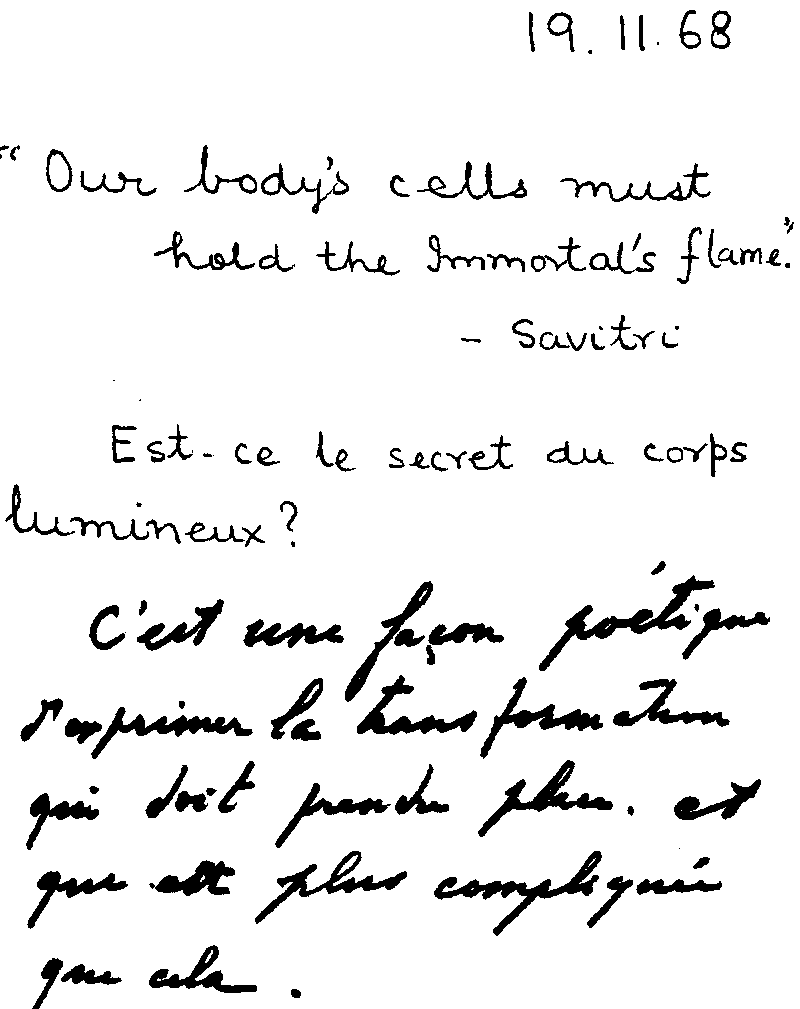 19.11.68
"Our body's cells must
hold the Immortal's flame."
- Savitri
Est-ce le secret du corps
lumineux?
C'est une façon poétique
d'exprimer la transformation
qui doit prendre place. et
qui est plus compliquée
que cela.